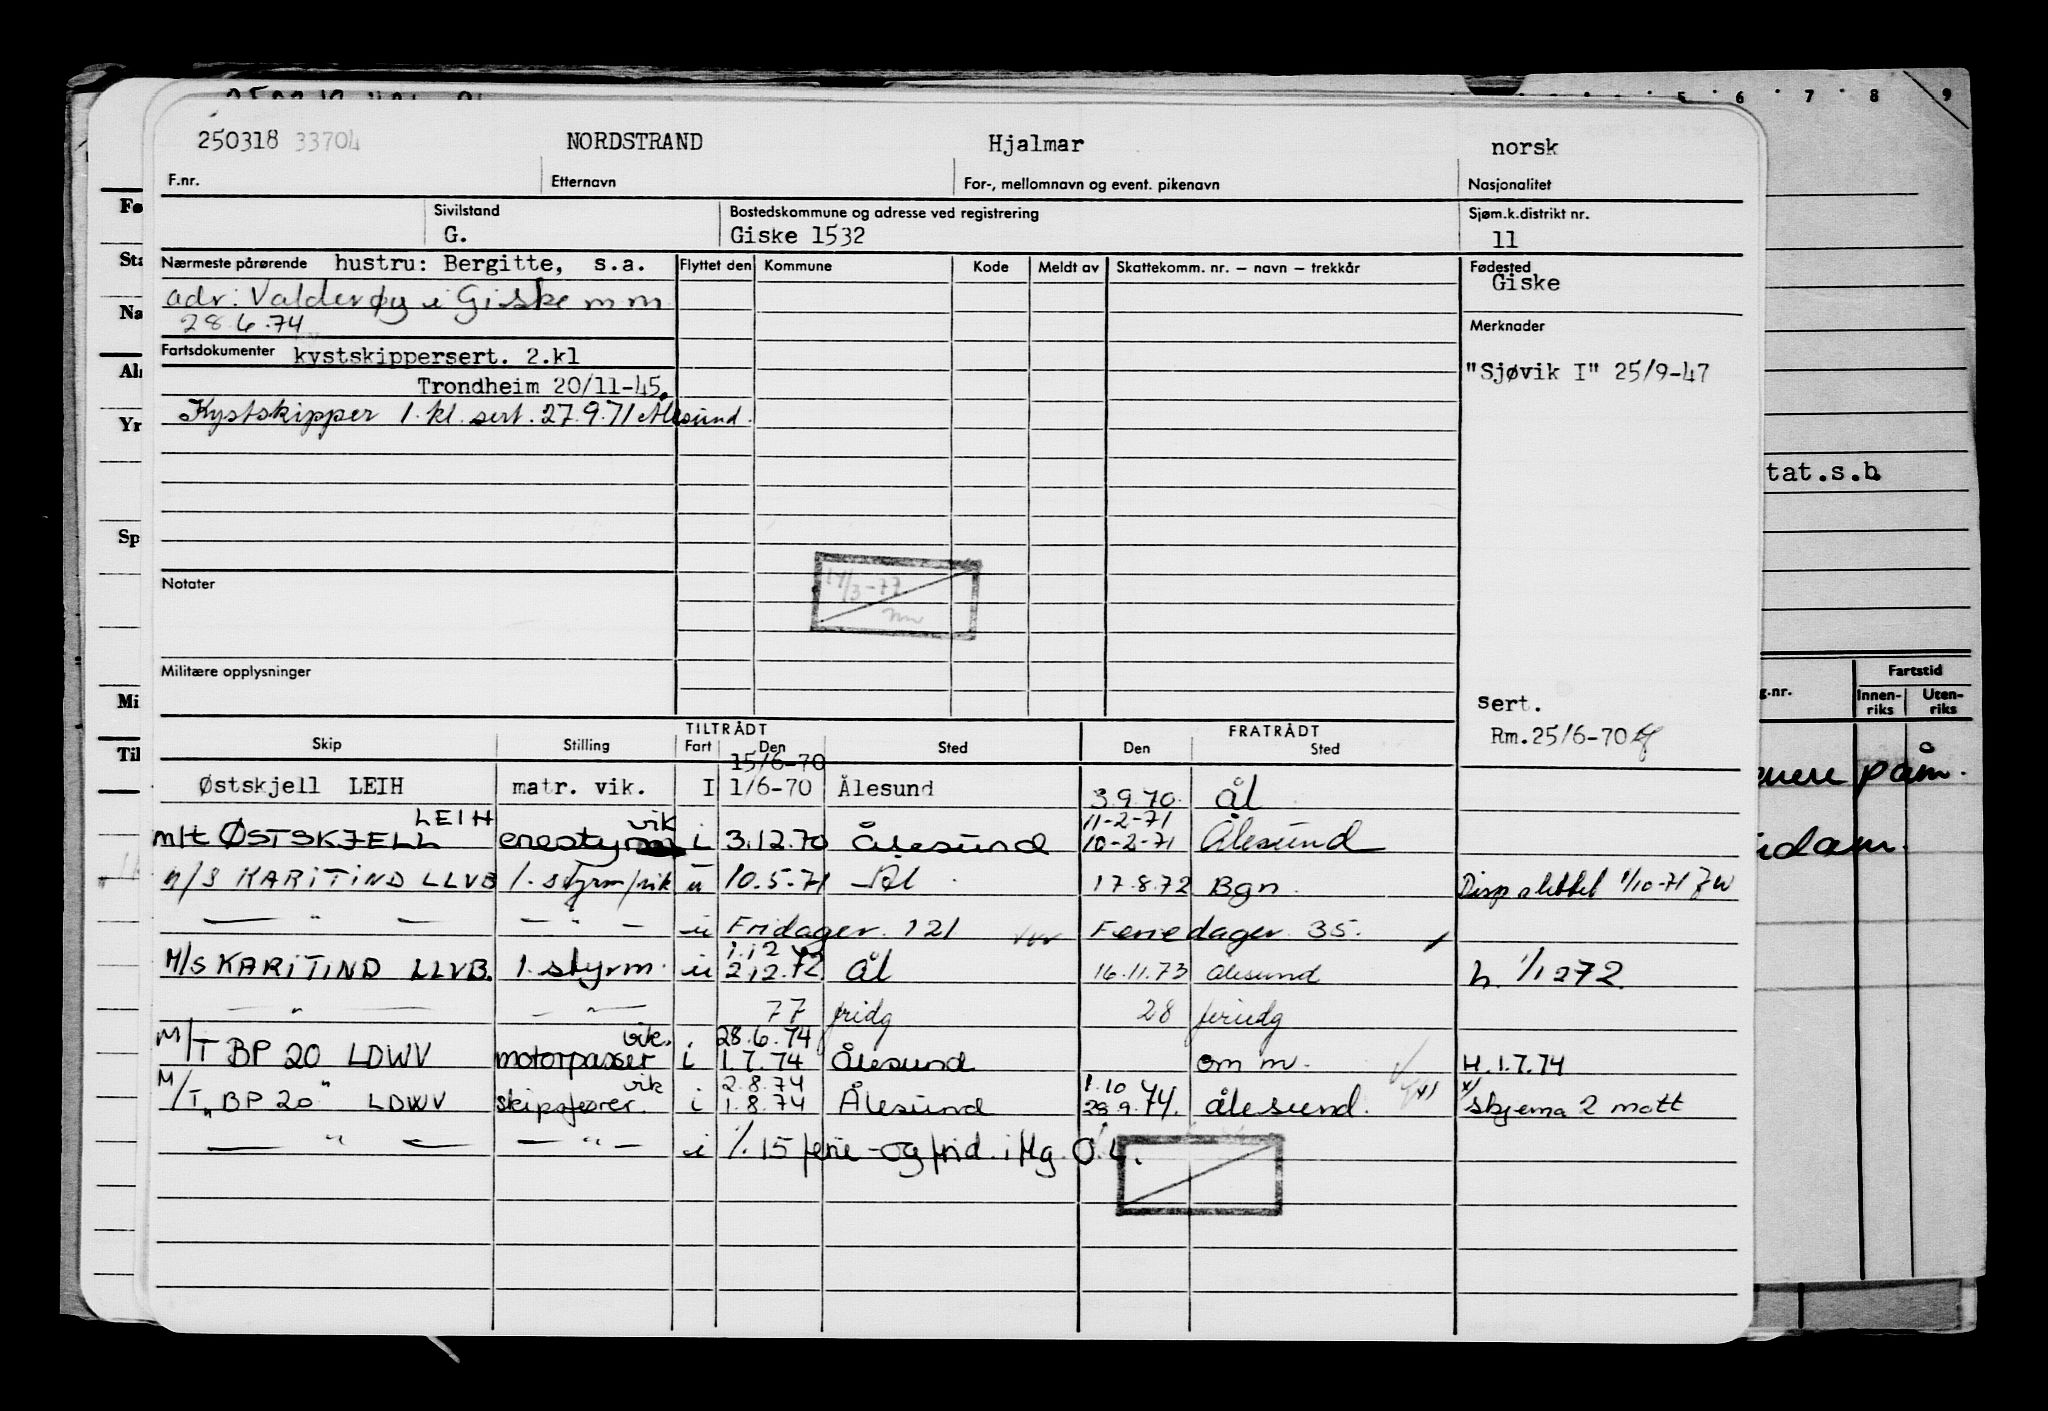 5 6 7 8 9
250318 33704 NORDSTRAND Hjalmar norsk
F.nr. Etternavn For-, mellomnavn og event. pikenavn Nasjonalitet
Sivilstand Bostedskommune og adresse ved registrering Sjøm.k.distrikt nr.
G. Giske 1532 11
Nærmeste pårørende hustru: Bergitte, s.a. Flyttet den Kommune Kode Meldt av Skattekomm. nr. – navn – trekkår Fødested
Giske
adr: Valderøy i Giske m m
28.6.74
Merknader
Fartsdokumenter kystskippersert. 2.kl
"Sjøvik I" 25/9-47
Trondheim 20/11-45.
Kystskipper 1. kl. sert. 27.9.71 Ålesund.
tat.s.b.
Notater
14/3-77
Militære opplysninger
sert.
Rm.25/6-70
g.nr. Fartstid
Innenriks Utenriks
TILTRÅDT FRATRÅDT
Skip Stilling Fart Den Sted Den Sted
15/6-70
Østskjell LEIH matr. vik. I 1/6-70 Ålesund 3.9.70. Ål
LEIH vik 11-2-71
m/t ØSTSKJELL enestyrm i 3.12.70 Ålesund 10-2-71 Ålesund
M/S KARITIND LLVB 1. styrm/vik u 10.5.71 Ål 17.8.72 Bgn. Disp slettet 1/10-71
— " — — " — u Fridager 121 Feriedager 35.
1.12
M/S KARITIND LLVB. 1. styrm. u 2.12.72 Ål 16.11.73 Ålesund h. 1/1272.
— " — — " — 77 fridg 28 feriedg
vik. 28.6.74
M/T BP 20 LDWV motorpasser i 1.7.74 Ålesund om m. H.1.7.74
vik 2.8.74 1.10
M/T "BP 20" LDWV skipsfører. i 1.8.74 Ålesund 28.9.74. Ålesund. x/ skjema 2 mott
— " — — " — i %. 15 ferie- og frid. i flg. O.L.